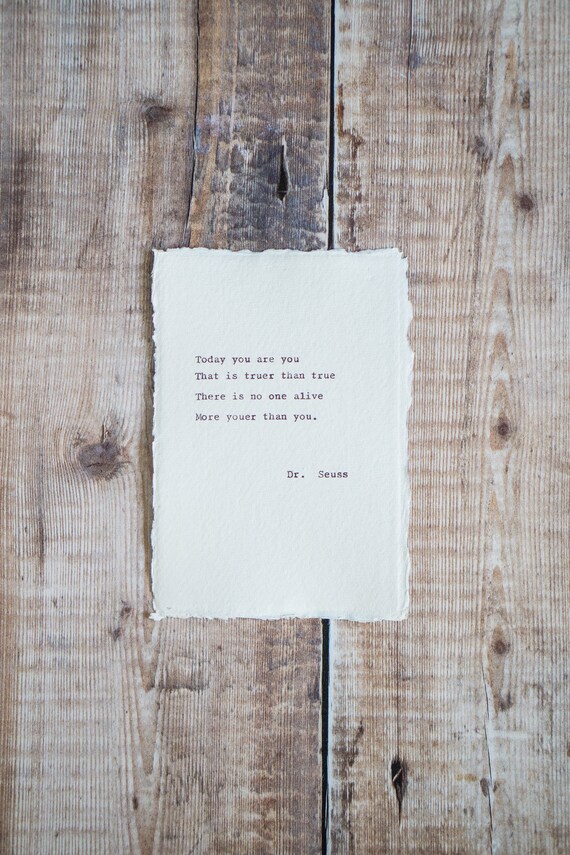 Today you are you
That is truer than true
There is no one alive
More youer than you.
Dr. Seuss